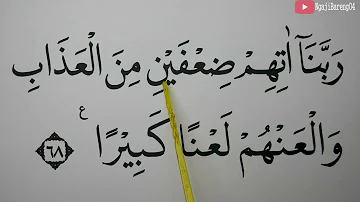 NgajiBareng04
رَبَّنَآ اٰتِهِمْ ضِعْفَيْنِ مِنَ الْعَذَابِ
وَالْعَنْهُمْ لَعْنًا كَبِيْرًا ۝٦٨ ع